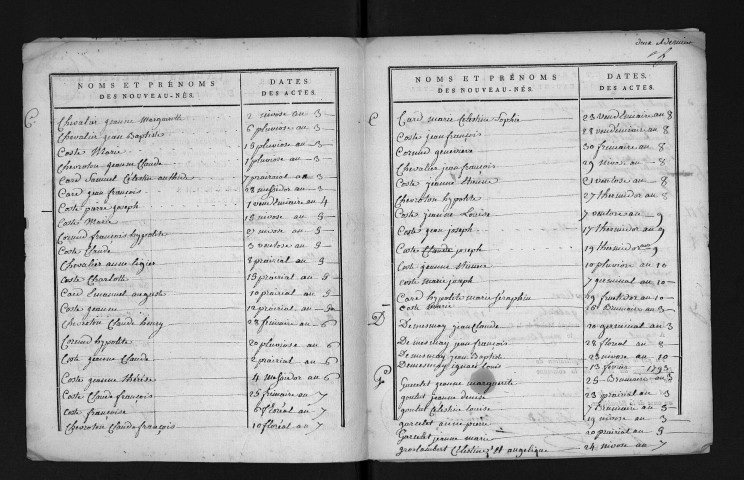 NOMS ET PRÉNOMS
DES NOUVEAU-NÉS.
DATES
DES ACTES.
C.
Chevalier jeanne Marguerite 2 nivose an 3
Chevalier jean Baptiste 6 pluviose an 3
Coste Marie 18 pluviose an 3
Chevroton jeanne Claude 1 pluviose an 3
Card Samuel Célestin 7 prairial an 3
Card jean françois 28 messidor an 3
Coste pierre joseph 1 vendemiaire an 4
Coste Marie 18 nivose an 5
Cornud françois hypolite 2 nivose an 5
Coste Claude 3 ventose an 5
Chevalier anne 8 prairial an 5
Coste Charlotte 15 prairial an 5
Card Emanuel auguste 10 prairial an 5
Coste jeanne 12 prairial an
Chevroton Claude henry 28 frimaire an 6
Cornud hypolite 20 pluviose an 6
Coste jeanne Claude 2 prairial an 6
Coste jeanne thérèse 4 messidor an 6
Coste Claude françois 25 frimaire an 7
Coste françoise 6 floréal an 7
Chevroton Claude françois 10 floréal an 7
NOMS ET PRÉNOMS
DES NOUVEAU-NÉS.
DATES
DES ACTES.
C
Card marie Celestine Sophie 23 vendemiaire an 8
Coste jean françois 28 vendemiaire an 8
Cornud genevieve 30 frimaire an 8
Chevalier jean françois 29 nivose an 8
Coste jeanne 21 ventose an 8
Chevroton hypolite 27 thermidor an 8
Coste jeanne Louise 7 ventose an 9
Coste jean joseph 17 thermidor an 9
Coste Claude joseph 19 thermidor an 9
Coste jeanne 10 pluviose an 10
Coste marie joseph 7 germinal an 10
Card hypolite marie Séraphin 19 fructidor an 10
Coste marie Brumaire an 3
D
Demesmay jean Claude 20 germinal an 3
Demesmay jean françois 28 floréal an 8
Demesmay jean Baptiste 23 nivose an 10
Demesmay ignace Louis 13 fevrier 1793
G
Garcelet jeanne marguerite 25 Brumaire an 3
goutet jeanne denise 23 prairial an 3
goutet Célestine Louise 7 Brumaire an 5
garcelet anne pierre 19 nivose an 5
Garcelet jeanne marie 20 prairial an 5
groslambert Célestine angelique 24 nivose an 7